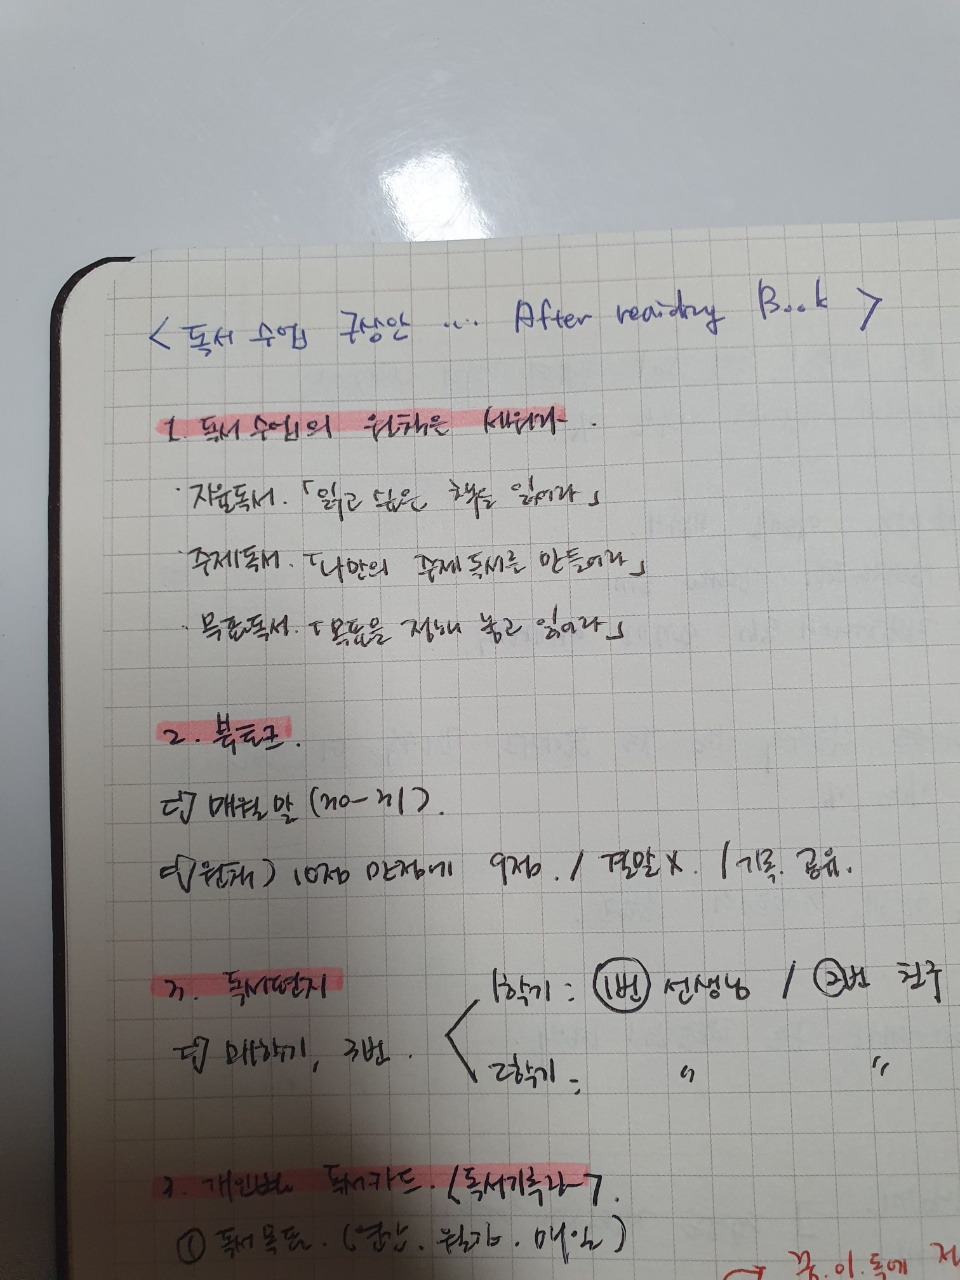 < 독서 수업 구상안 ... After reading Book >
1. 독서 수업의 원칙은 세워라.
· 자율독서. 「읽고 싶은 책을 읽어라」
· 주제독서. 「나만의 주제독서를 만들어라」
· 목표독서. 「목표을 정해 놓고 읽어라」
2. 북토크.
매월말 (30-31).
원칙) 10점 만점에 9점. / 결말X. / 기록. 공유.
3. 독서편지
매학기, 3번.
1학기: 1번 선생님 / 2번 친구
2학기: 〃 〃
3. 개인별 독서카드. (독서기록장).
① 독서목표. (연간. 월간. 매일)